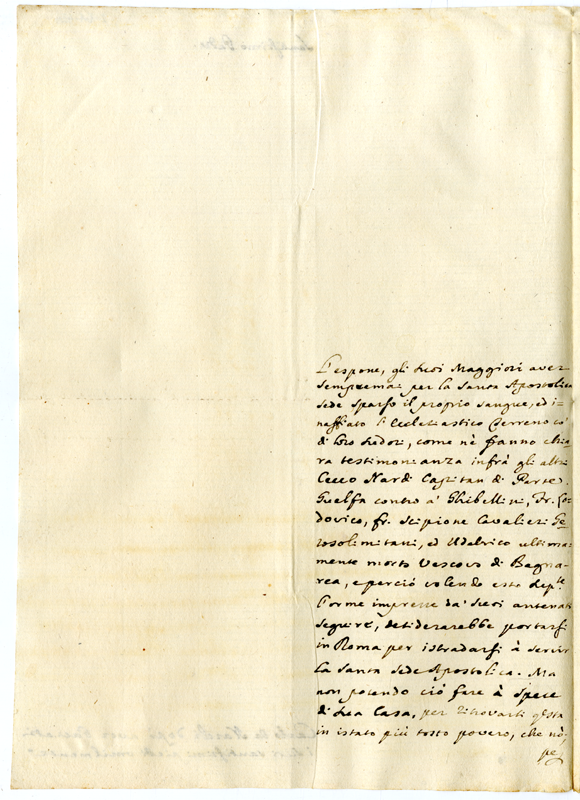 L'espone, gli suoi Maggiori aver
sempremai per la Santa Apostolica
sede sparso il proprio sangue, ed i-
naffiato l'Ecclesiastico Terreno co'
di loro sudori, come nè fanno chia-
ra testimonianza infrà gli altri
Cecco Nardi Capitan di Parte
Guelfa contro a' Ghibellini, Fr. Lo-
dovico, fr. Scipione Cavalieri Ge-
rosolimitani, ed Udelrico ultima-
mente morto Vescovo di Bagna-
rea, e perciò volendo esto
l'orme impresse da' suoi antenati
seguire, desiderarebbe portarsi
in Roma per istradarsi à servir
la Santa Sede Apostolica. Ma
non potendo ciò fare à spese
di sua Casa, per ritrovarsi qsta
in istato più tosto povero, che nò,
pe